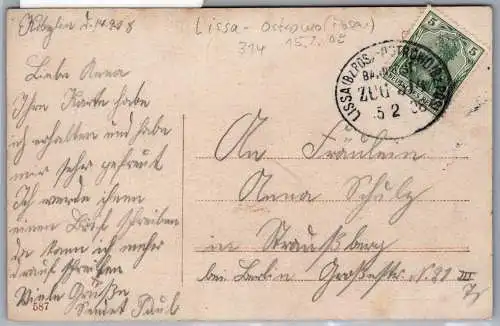 Kobylin d. 14.2.08
Liebe Anna
Ihre Karte habe
ich erhalten und habe
mir sehr gefreut
Ich werde ihnen
einen Brief schreiben
da kann ich mehr
drauf schreiben
Viele Grüße
Paul
587
Lissa - Ostrowo
314 15.2.08
5
LISSA (BZ. POS.) - OSTROWO
BAHNPOST
ZUG
15 2 08
An Fräulein
Anna Schulz
in Straußberg
bei Berlin Großestr. N. 21 III